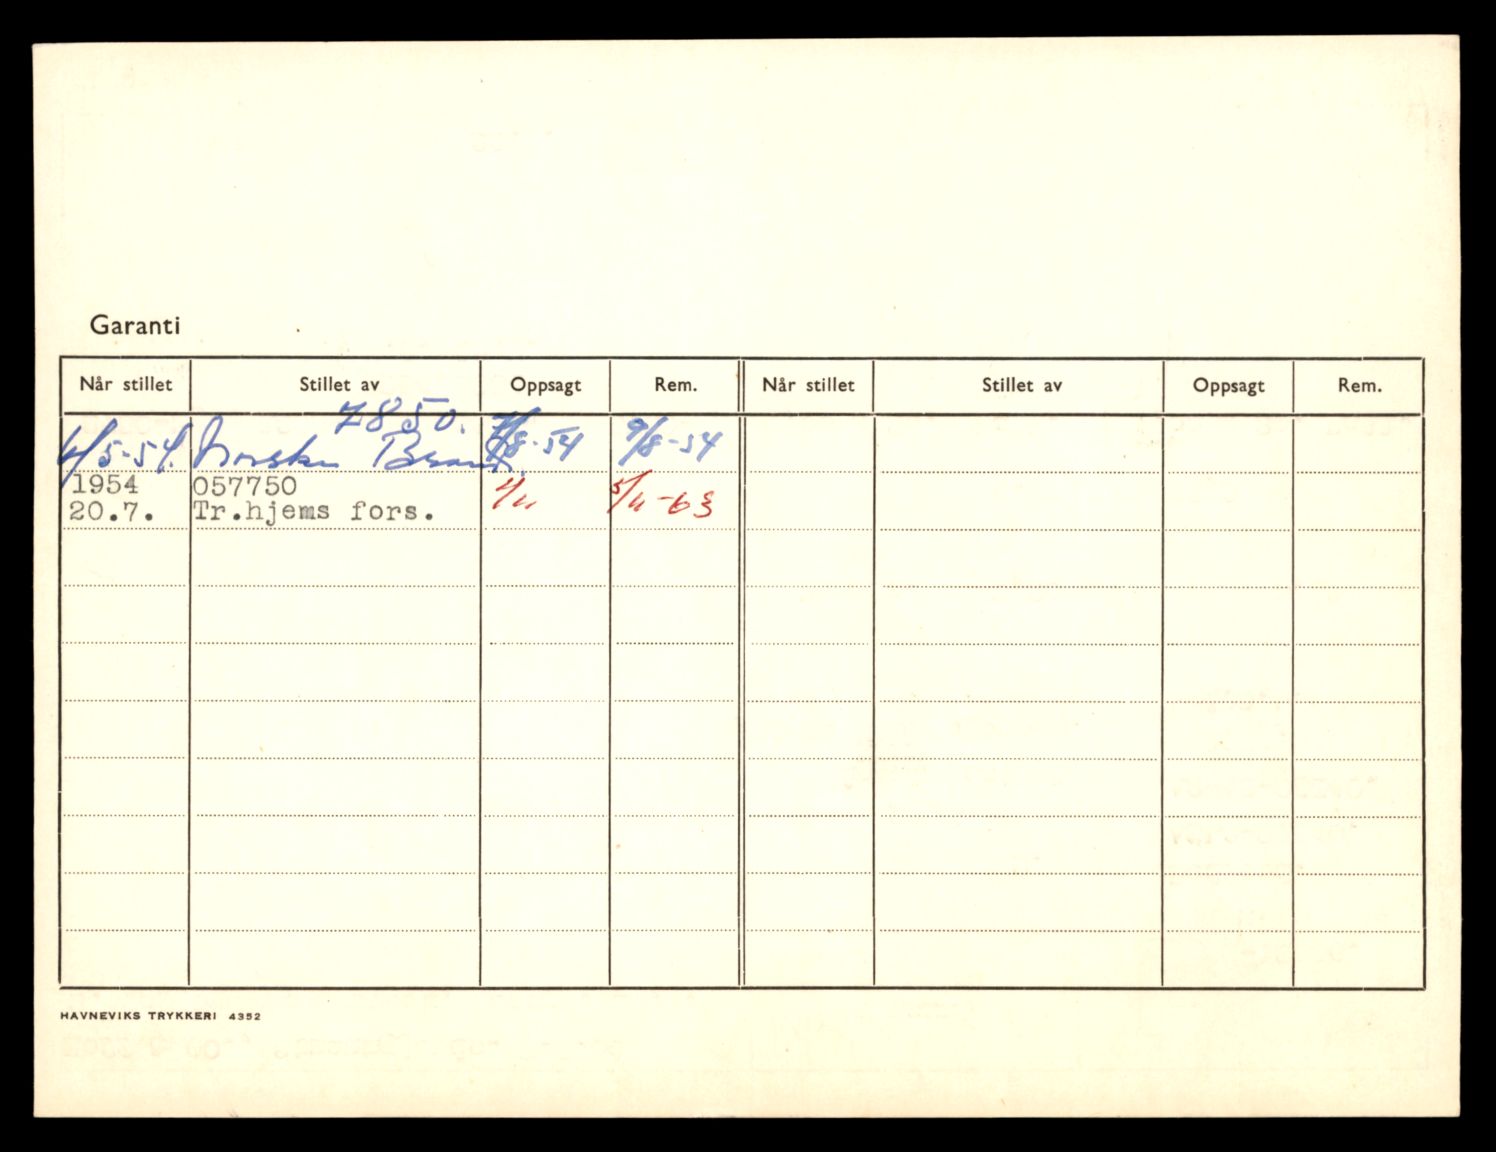 Garanti
Når stillet Stillet av Oppsagt Rem. Når stillet Stillet av Oppsagt Rem.
7850.
/5-54. Norske Brand. /8-54 9/8-54
1954 057750
20.7. Tr.hjems fors. 1/11 5/11-63
HAVNEVIKS TRYKKERI 4352